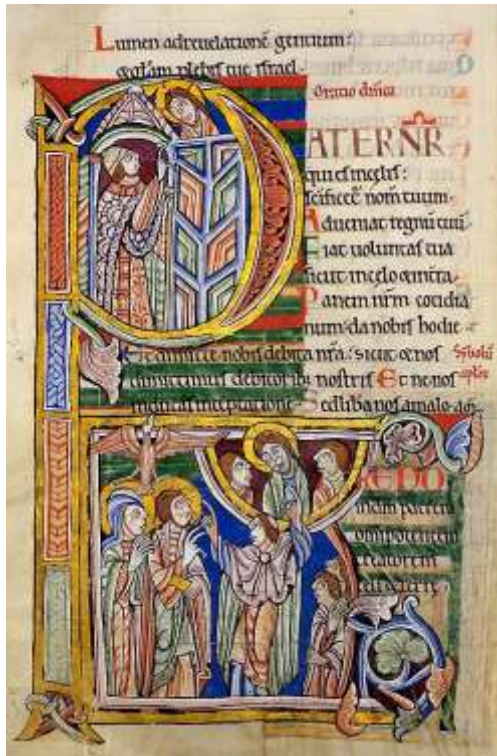 Lumen ad reuelationē gentium:
& glām plebis tue israel.
Oratio dn̄ica
PATER NR̄
qui es in celis:
scificet̄ nom̄ tuum.
Adueniat regnū tuū
Fiat uoluntas tua
sicut in celo & in tra.
Panem nr̄m cotidia
num: da nobis hodie
Et dimitte nobis debita nr̄a: sicut & nos
dimittimus debitorib; nostris Et ne nos
inducas in teptatione. Sed liba nos a malo. am̄.
Sybolū
aplor̄
REDO
in dm̄ patrem
omnipotentem
creatorem
celi & terre.